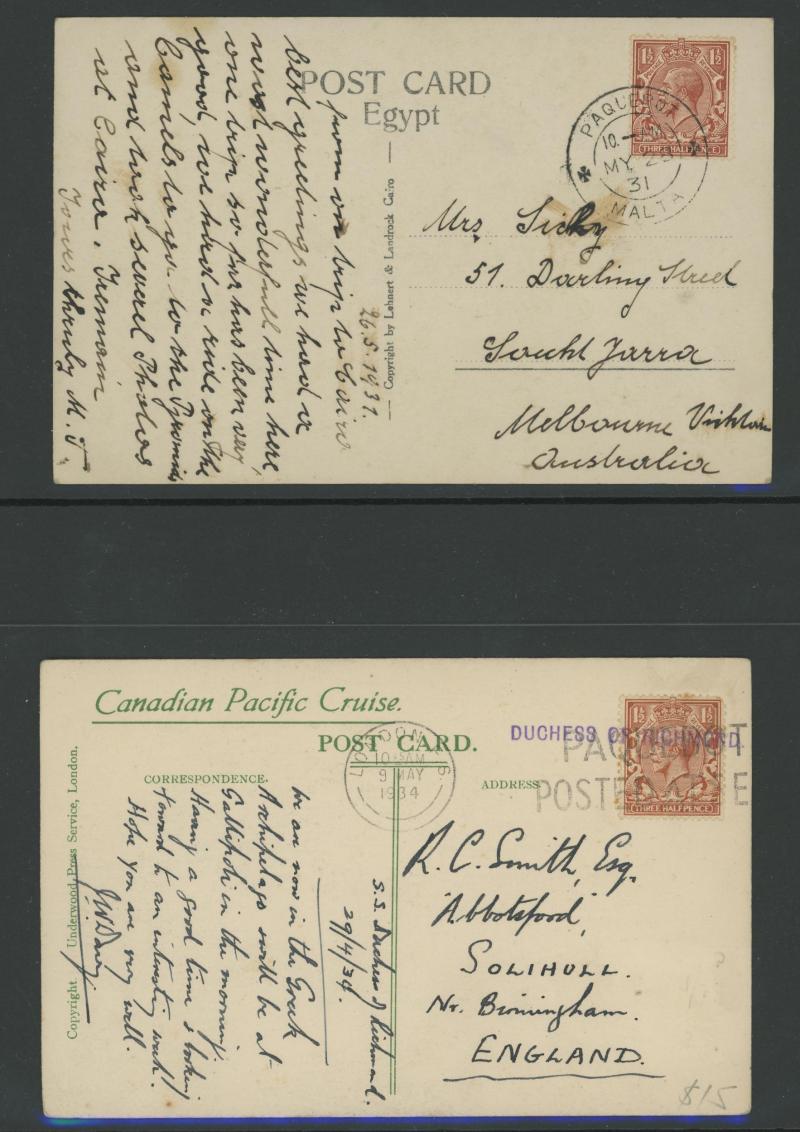 POST CARD
Egypt
from on trip to Cairo
best greetings we had a
most wonderfull time here,
one trip so far has been very
good, we had a ride on the
Camels to go to the Pyramids
and took several Photos
at Cairo. Iremain
Yours thruly M. J.
26.5.1931.
Copyright by Lehnert & Landrock Cairo
1½ 1½
THREE HALFPENCE
PAQUEBOT
10.-AM
MY
31
MALTA
Mrs. Sicky
51. Darling Street
Souht Jarra
Melbourne
Australia
Canadian Pacific Cruise.
POST CARD.
CORRESPONDENCE.
ADDRESS
Copyright. Underwood Press Service, London.
LONDON F.S.
10 AM
9 MAY
1934
DUCHESS OF RICHMOND.
PAQUEBOT
POSTED E
1½ 1½
THREE HALFPENCE
S.S. Duchess of Richmond.
29/4/34.
We are now in the Greek
Archipelago & will be at
Gallipoli in the morning.
Having a good time & looking
forward to an interesting week.
Hope you are very well.
R. C. Smith, Esq.
Abbotsford,
SOLIHULL.
Nr. Birmingham.
ENGLAND.
$15